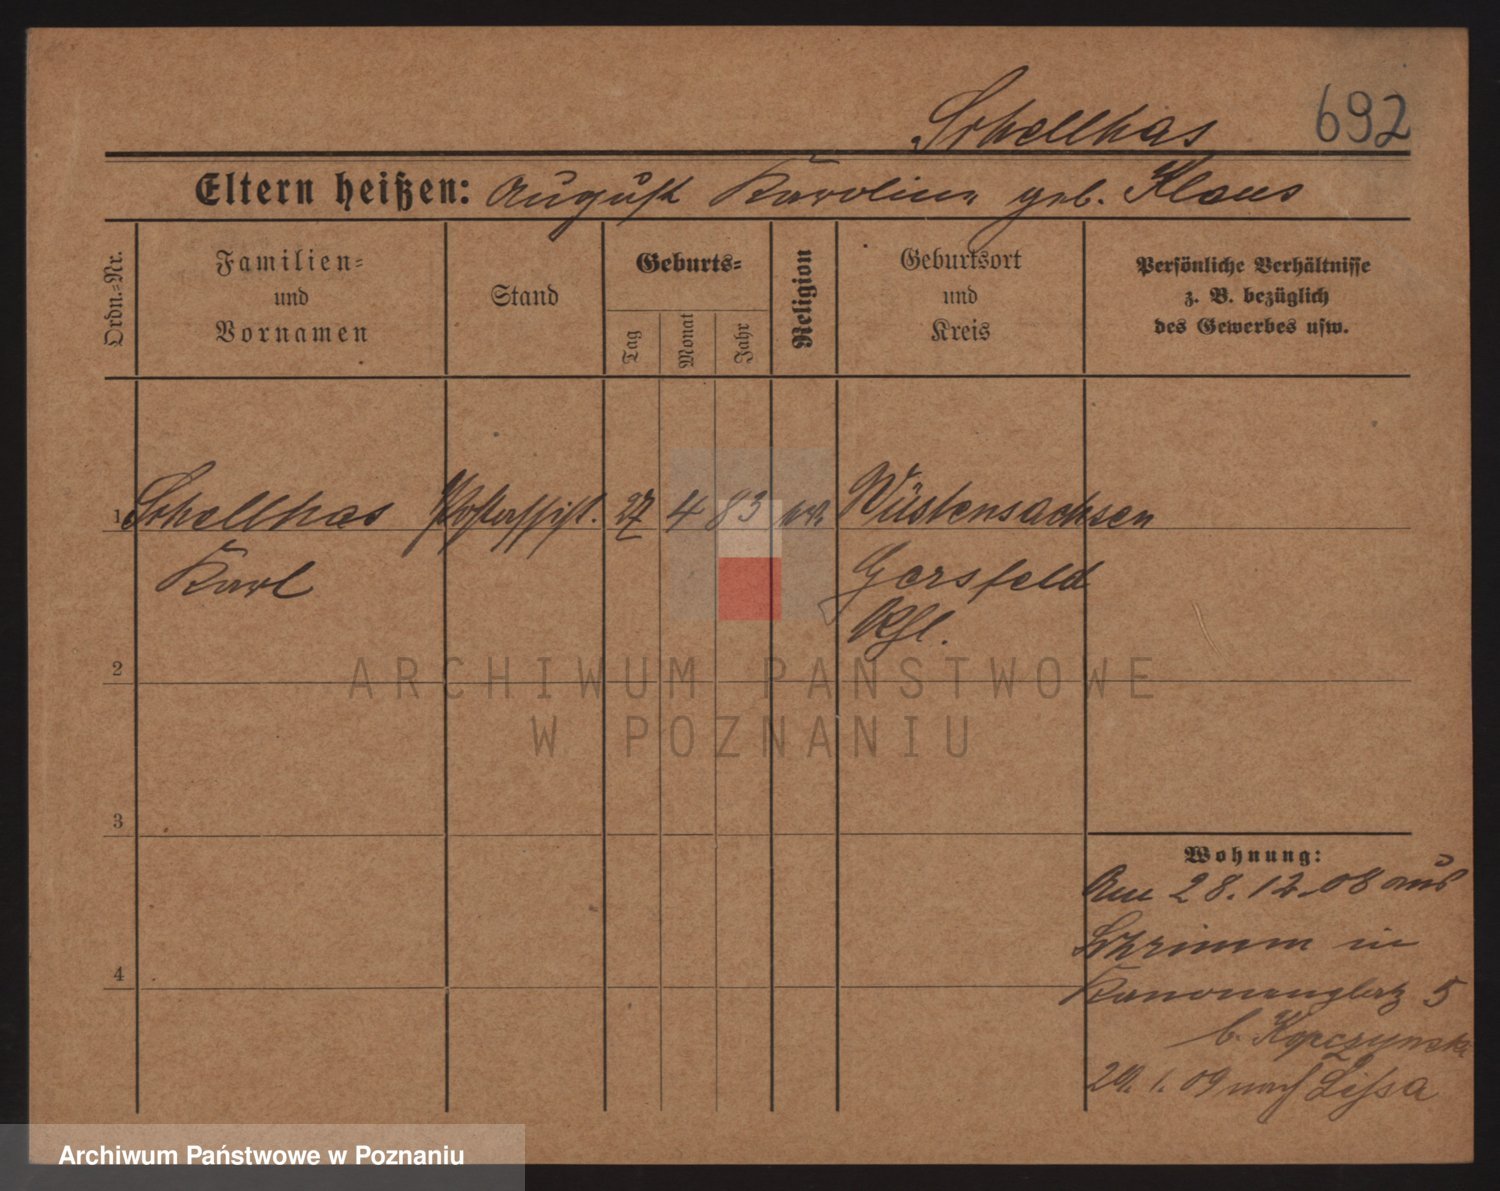 Schellhas 692
Eltern heißen: August Karoline geb. Klaus
Ordn.-Nr.
Familien-
und
Vornamen
Stand
Geburts-
Tag
Monat
Jahr
Religion
Geburtsort
und
Kreis
Persönliche Verhältnisse
z. B. bezüglich
des Gewerbes usw.
1 Schellhas Postassist. 27 4 83 Wüstensachsen
Karl Gersfeld
2
ARCHIWUM PAŃSTWOWE
W POZNANIU
3
Wohnung:
Am 28.12.08 aus
Schrimm in
4
Kanonenplatz 5
b. Kopczynski
29.1.09 nach Lissa
Archiwum Państwowe w Poznaniu